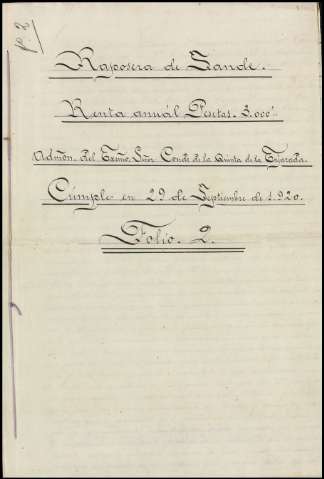 nº 2
Raposera de Sande.
Renta anuál Pesetas. 3.000''
Admón. del Exmo. Señor Conde de la Quinta de la Enjarada.
Cúmple en 29 de Septiembre de 1.920.
Folio. 2.